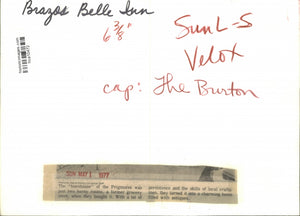 Brazos Belle Inn
6 3/8"
Sun L-S
Velox
cap: The Burton
SUN MAY 1 1977
The "townhouse" of the Prignanos was
just two barny rooms, a former grocery
store, when they bought it. With a lot of
persistence and the skills of local crafts-
men, they turned it into a charming home
filled with antiques.